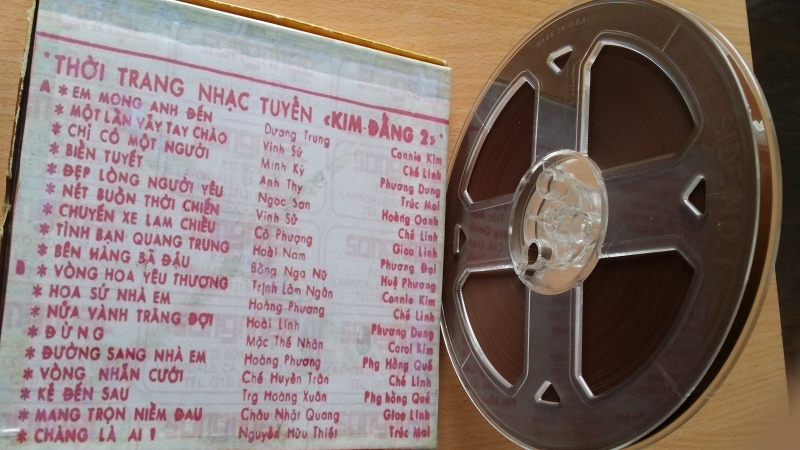 *THỜI TRANG NHẠC TUYỂN «KIM-ĐẰNG 2»*
A * EM MONG ANH ĐẾN Dương Trung Connie Kim
* MỘT LẦN VẪY TAY CHÀO Vinh Sử Chế Linh
* CHỈ CÓ MỘT NGƯỜI Minh Kỳ Phương Dung
* BIỂN TUYẾT Anh Thy Trúc Mai
* ĐẸP LÒNG NGƯỜI YÊU Ngọc Sơn Hoàng Oanh
* NÉT BUỒN THỜI CHIẾN Vinh Sử Chế Linh
* CHUYẾN XE LAM CHIỀU Cô Phượng Giao Linh
* TÌNH BẠN QUANG TRUNG Hoài Nam Phương Đại
* BÊN HÀNG BÃ ĐẬU Bằng Nga Nữ Huệ Phương
B * VÒNG HOA YÊU THƯƠNG Trịnh Lâm Ngân Connie Kim
* HOA SỨ NHÀ EM Hoàng Phương Chế Linh
* NỬA VÀNH TRĂNG ĐỢI Hoài Linh Phương Dung
* ĐỪNG Mặc Thế Nhân Carol Kim
* ĐƯỜNG SANG NHÀ EM Hoàng Phương Phg Hồng Quế
* VÒNG NHẪN CƯỚI Chế Huyền Trân Chế Linh
* KẺ ĐẾN SAU Trg Hoàng Xuân Phg hồng Quế
* MANG TRỌN NIỀM ĐAU Châu Nhật Quang Giao Linh
* CHÀNG LÀ AI ! Nguyễn Hữu Thiết Trúc Mai
MADE IN U.S.A.